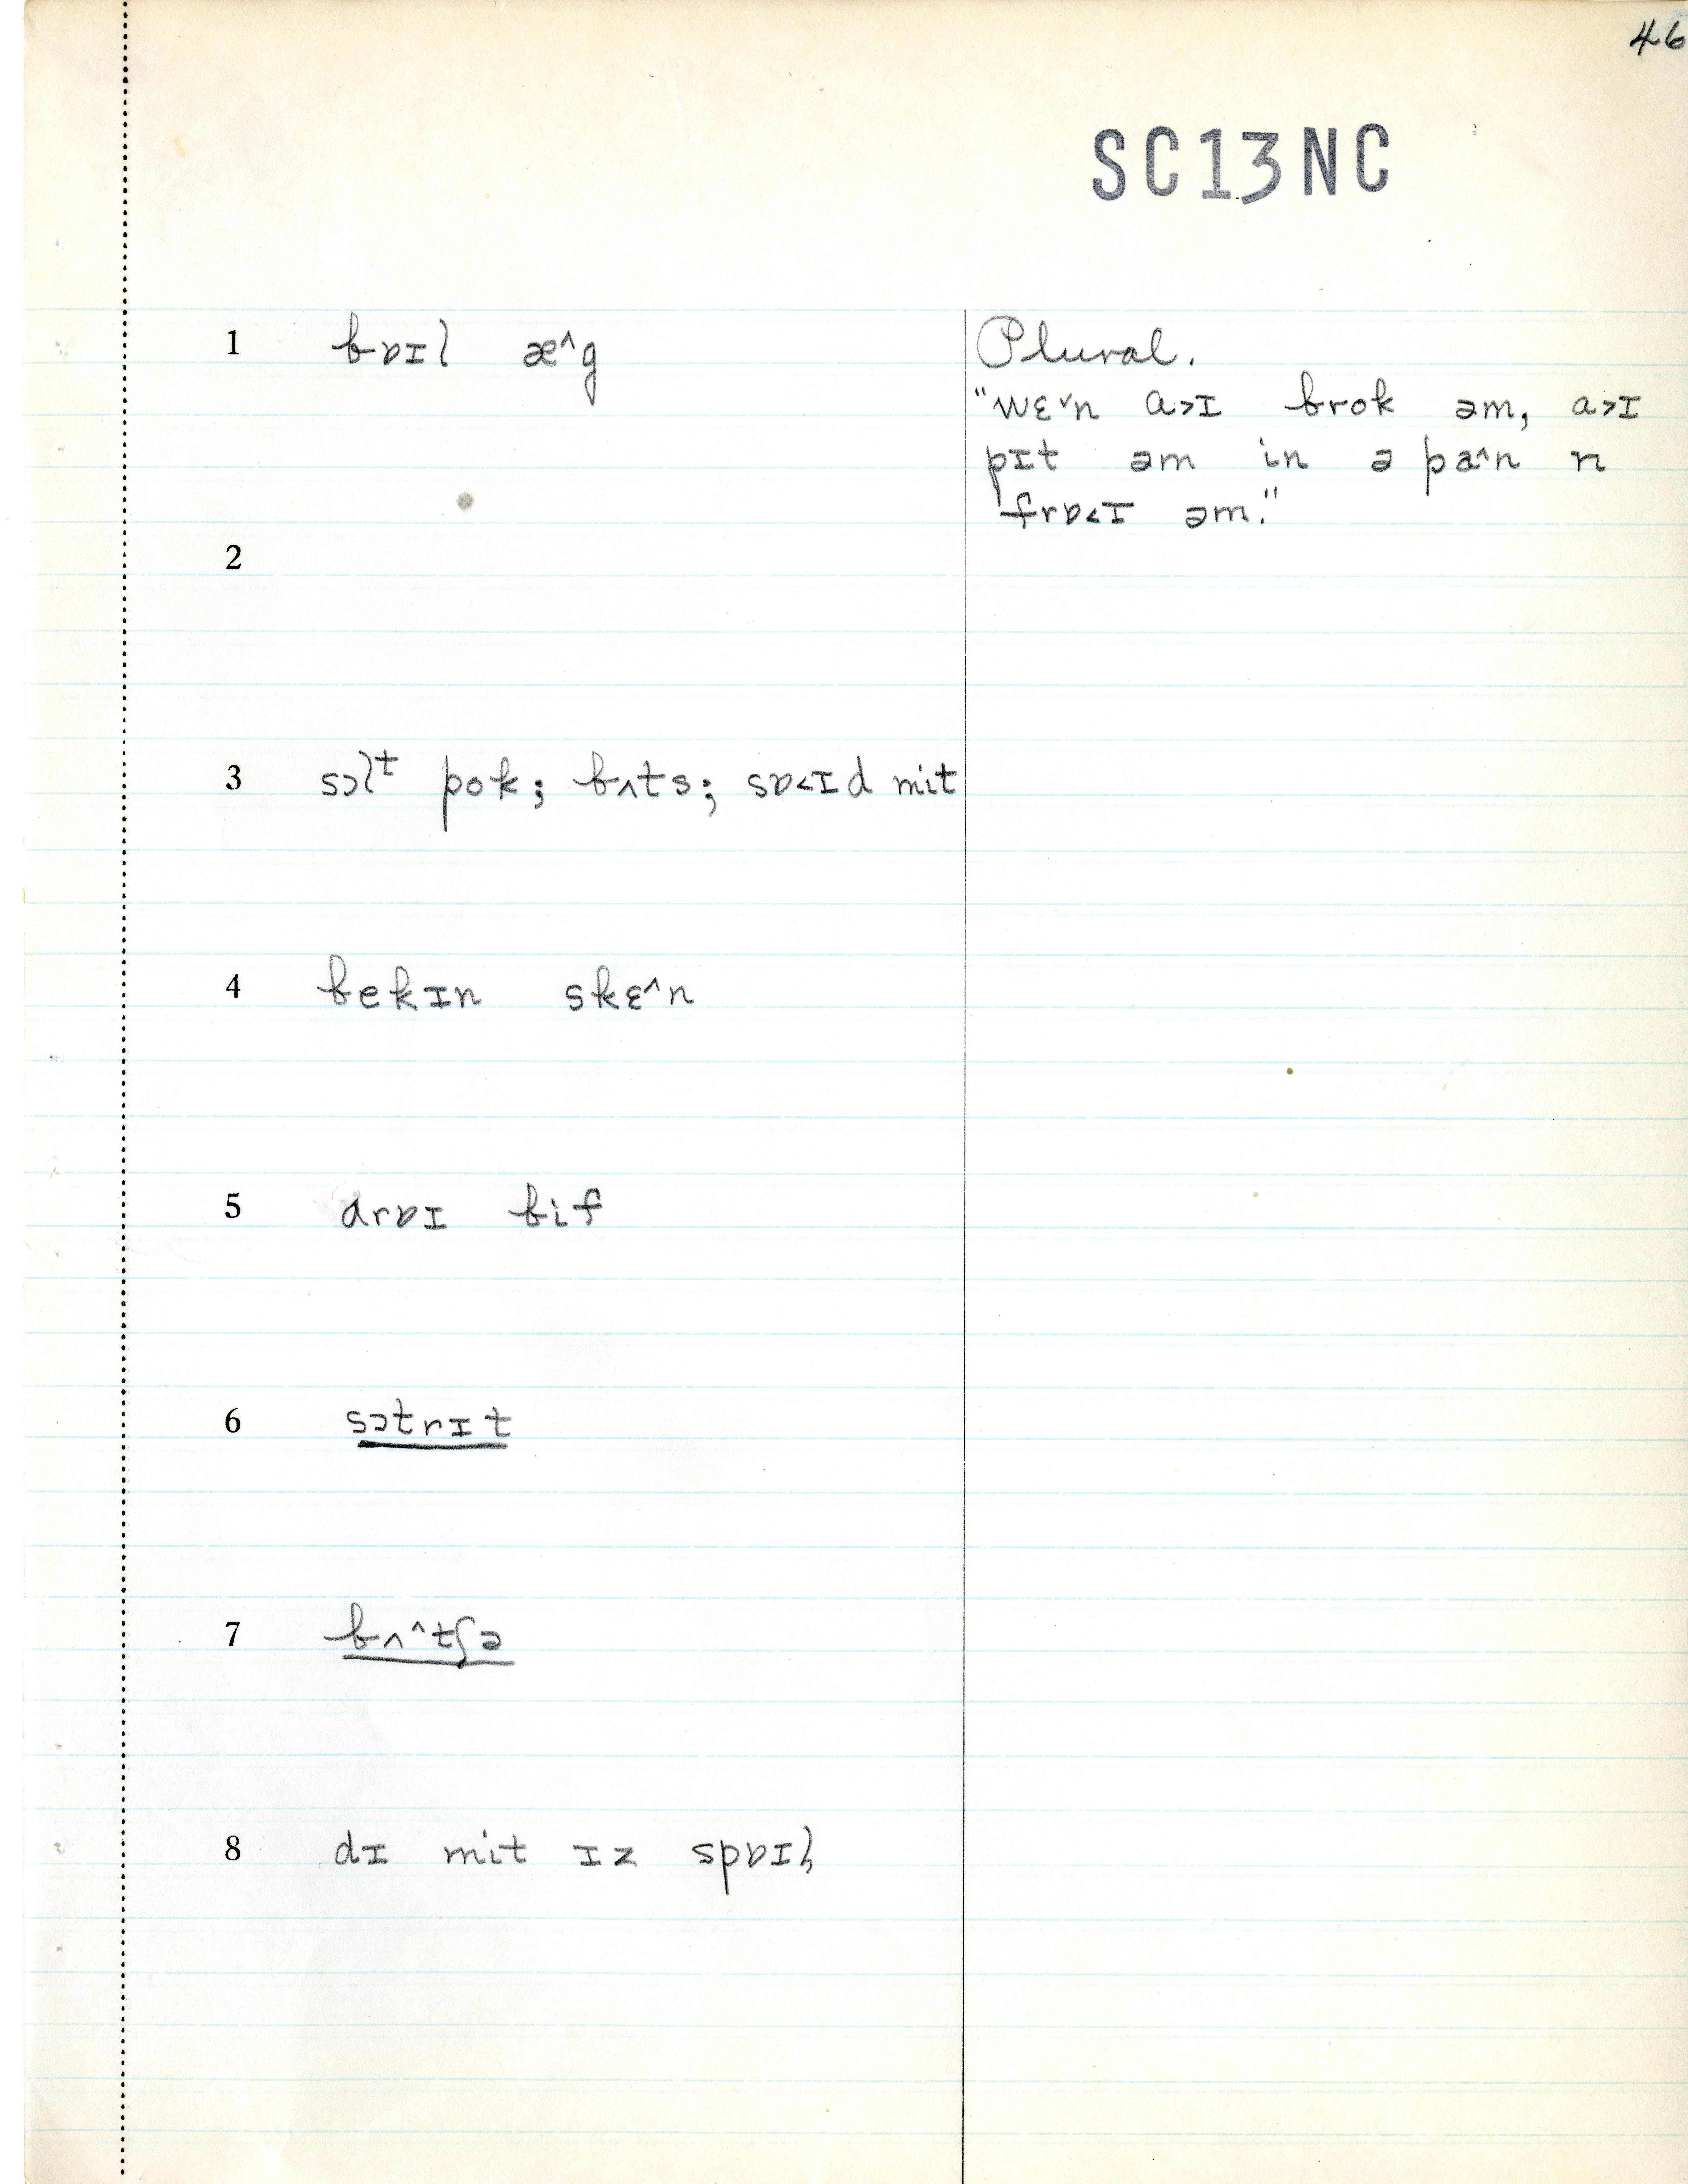 46
SC13NC
1 bɒɪl æ^g
Plural.
"wɛ˅n a>ɪ brok əm, a>ɪ
pɪt əm in ə pa^n n
frɒ<ɪ əm."
2
3 sɔlt pok; bʌts; sɒ<ɪd mit
4 bekɪn skɛ^n
5 drɒɪ bif
6 sɔtrɪt
7 bʌ^tʃə
8 dɪ mit ɪz spɒɪl̩